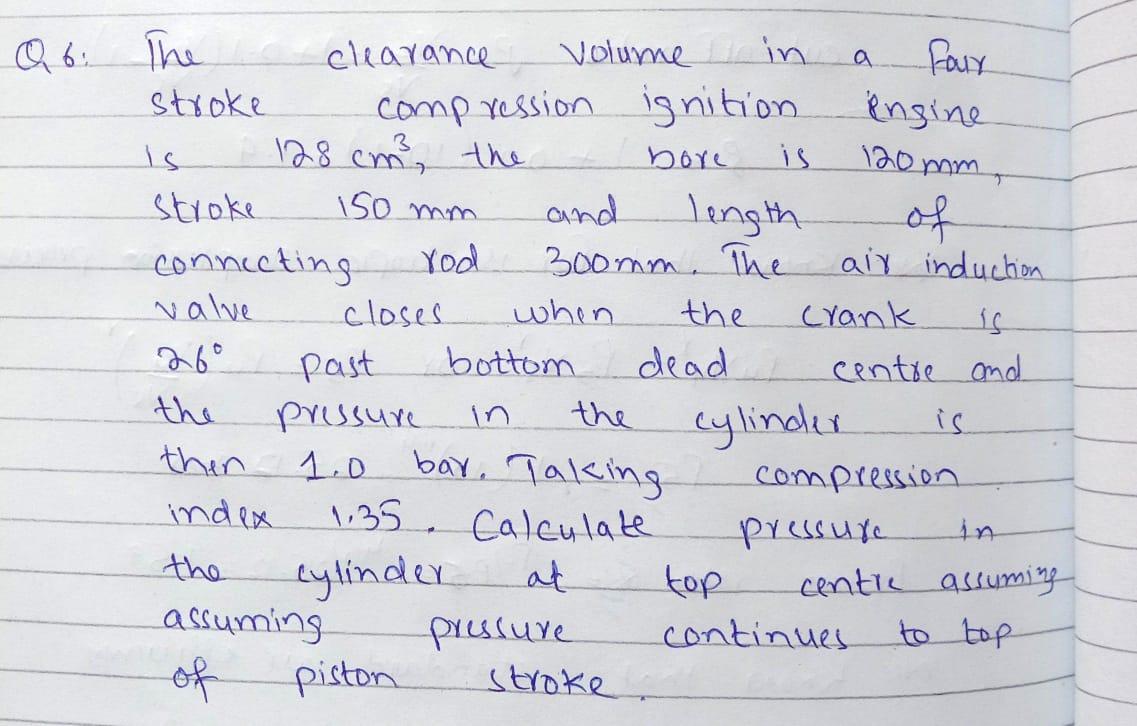 Q6: The clearance volume in a four
stroke compression ignition engine
is 128 cm³, the bore is 120mm,
stroke 150 mm and length of
connecting rod 300mm. The air induction
valve closes when the crank is
26° past bottom dead centre and
the pressure in the cylinder is
then 1.0 bar. Taking compression
index 1.35. Calculate pressure in
the cylinder at top centre assuming
assuming pressure continues to top
of piston stroke.